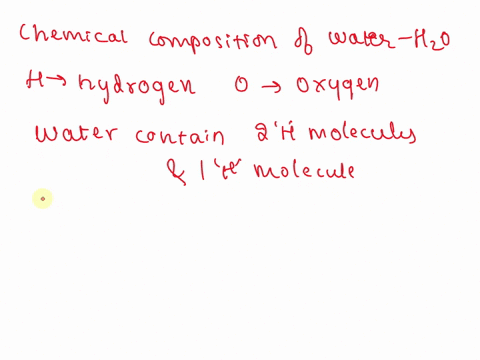 Chemical composition of water - H2O
H → hydrogen O → Oxygen
Water contain 2 'H' molecules
& 1 'H' molecule